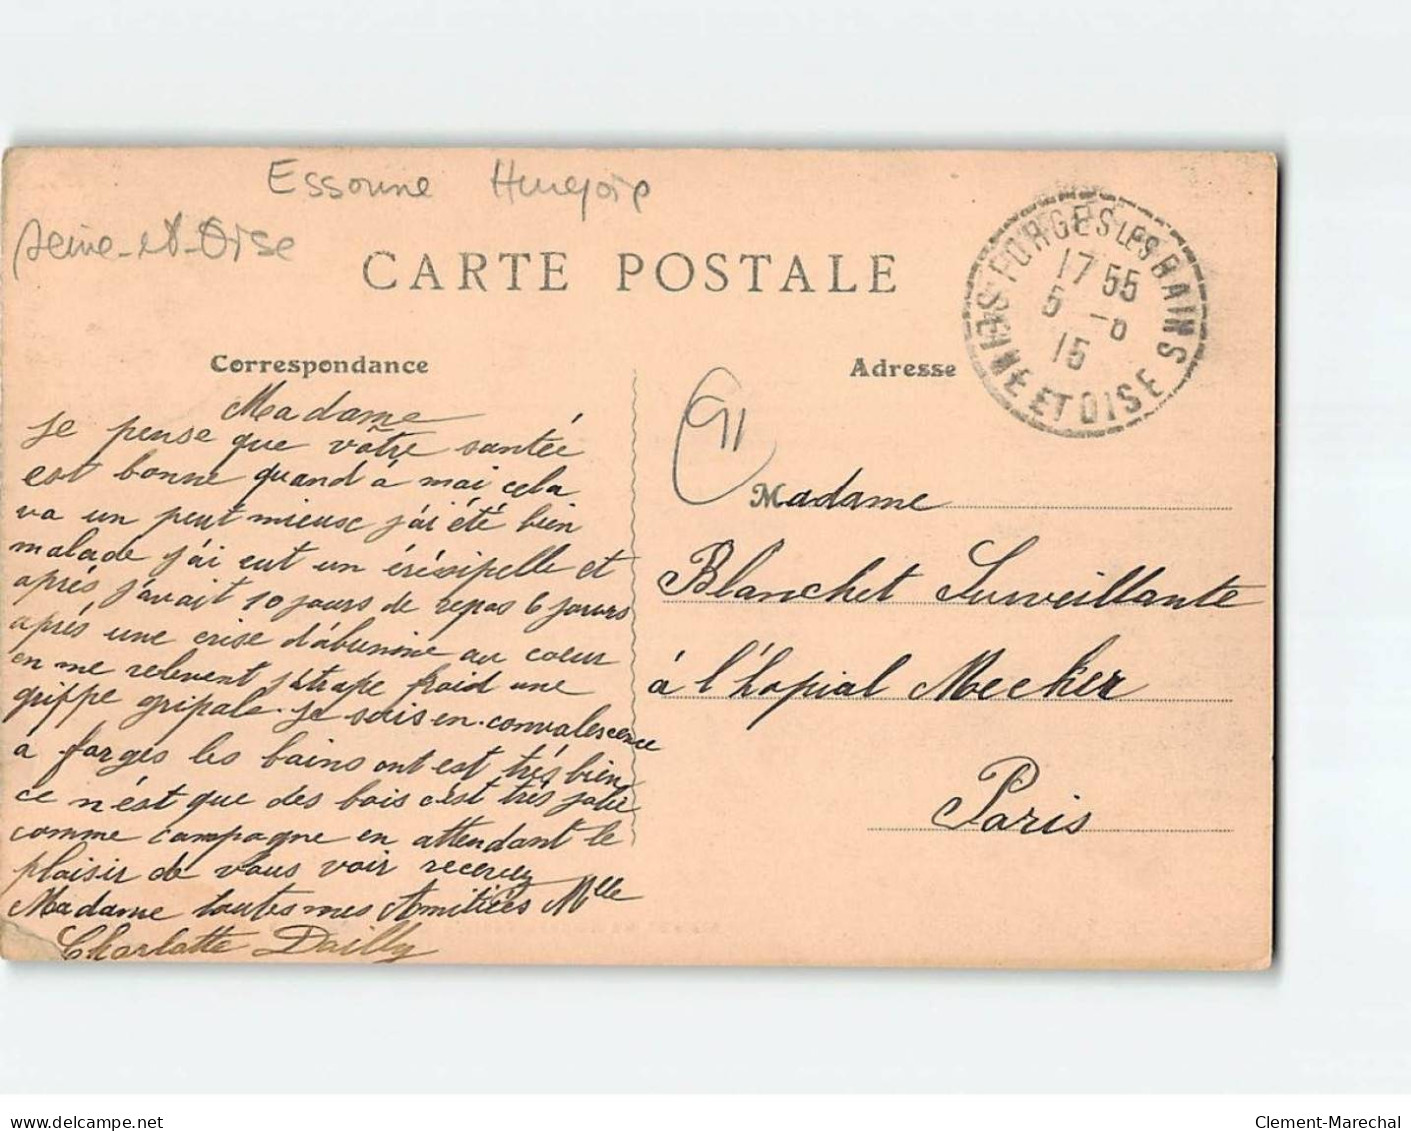 Essonne
Seine-et-Oise
CARTE POSTALE
FORGES LES BAINS
17 55
5 -8
15
SEINE ET OISE
Correspondance
Adresse
91
Madame
je pense que vôtre santée
est bonne quand á moi cela
va un peut mieuse j'ai été bien
malade j'ai eut un érésipelle et
aprés j'avait 10 jours de repos 6 jours
aprés une crise d'abumine au coeur
en me relevent j'atrape froid une
grippe gripale. je suis en convalescence
a forges les bains ont est trés bien
ce n'ést que des bois c'est trés jolie
comme campagne en attendant le
plaisir de vous voir recevez
Madame toutes mes Amitiées Mlle
Charlotte Dailly
Madame
Blanchet Surveillante
á l'hopial Necker
Paris
www.delcampe.net
Clement-Marechal